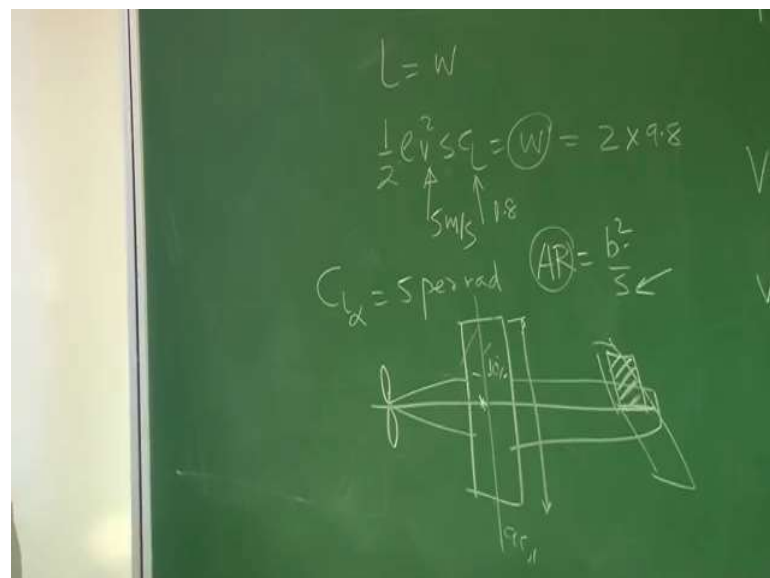 L = W
1/2 ρv²SC_L = W = 2 × 9.8
5m/s 1.8
AR = b²/S
C_Lα = 5 per rad